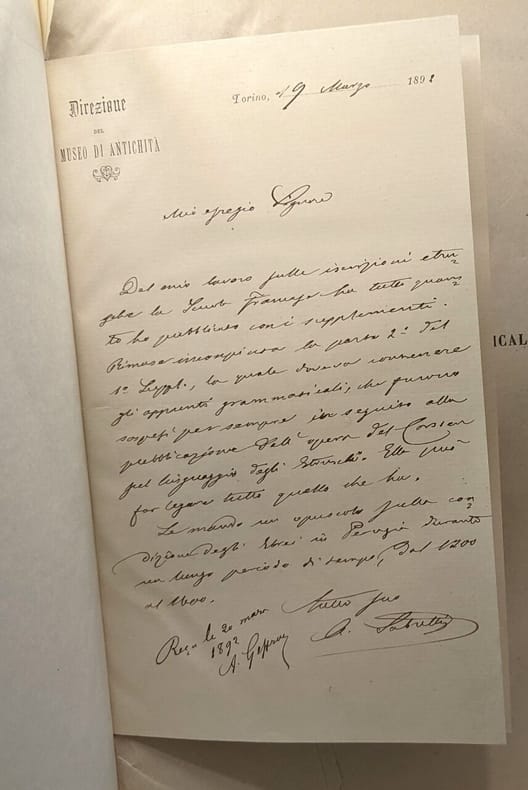 Direzione
DEL
MUSEO DI ANTICHITÀ
Torino, il 9 Marzo 1892
Mio egregio Signore
Del mio lavoro sulle iscrizioni etru-
sche la Scuola Francese ha tutto quan-
to ho pubblicato con i supplementi.
Rimase incompiuta la parte 2ª del
1º Suppl., la quale doveva contenere
gli appunti grammaticali, che furono
sospesi per sempre in seguito alla
pubblicazione dell'opera del Corssen
sul linguaggio degli Etruschi. Ella può
far legare tutto quello che ha.
Le mando un opuscolo sulla con-
dizione degli Ebrei in Perugia durante
un lungo periodo di tempo, dal 1200
al 1600.
Tutto suo
A. Fabretti
le 20 mars
1892
A. Geffroy
ICAL